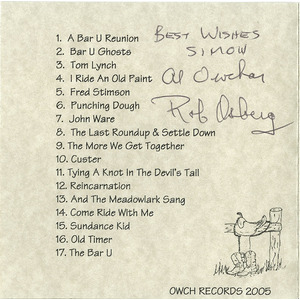 BEST WISHES
SIMON
Al Owchar
Rob Osberg
1. A Bar U Reunion
2. Bar U Ghosts
3. Tom Lynch
4. I Ride An Old Paint
5. Fred Stimson
6. Punching Dough
7. John Ware
8. The Last Roundup & Settle Down
9. The More We Get Together
10. Custer
11. Tying A Knot In The Devil's Tail
12. Reincarnation
13. And The Meadowlark Sang
14. Come Ride With Me
15. Sundance Kid
16. Old Timer
17. The Bar U
OWCH RECORDS 2005